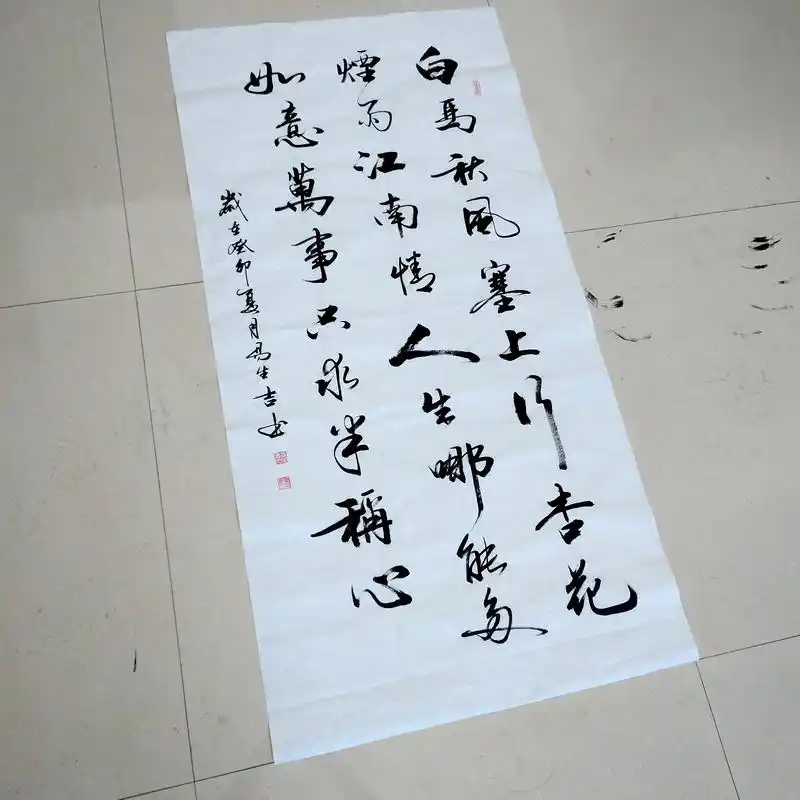 白馬秋風塞上行杏花
煙雨江南情人生哪能多
如意萬事只求半稱心
歲在癸卯夏月馬生吉书